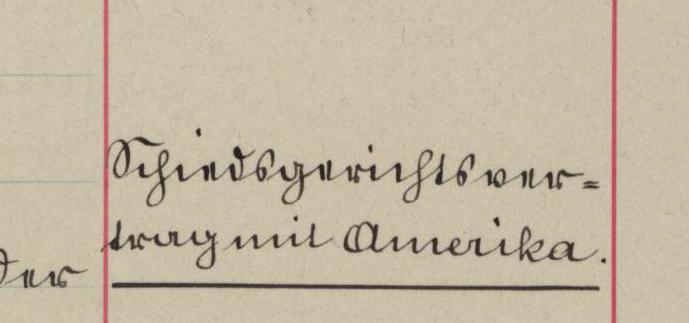 Schiedsgerichtsver=
trag mit Amerika.
der